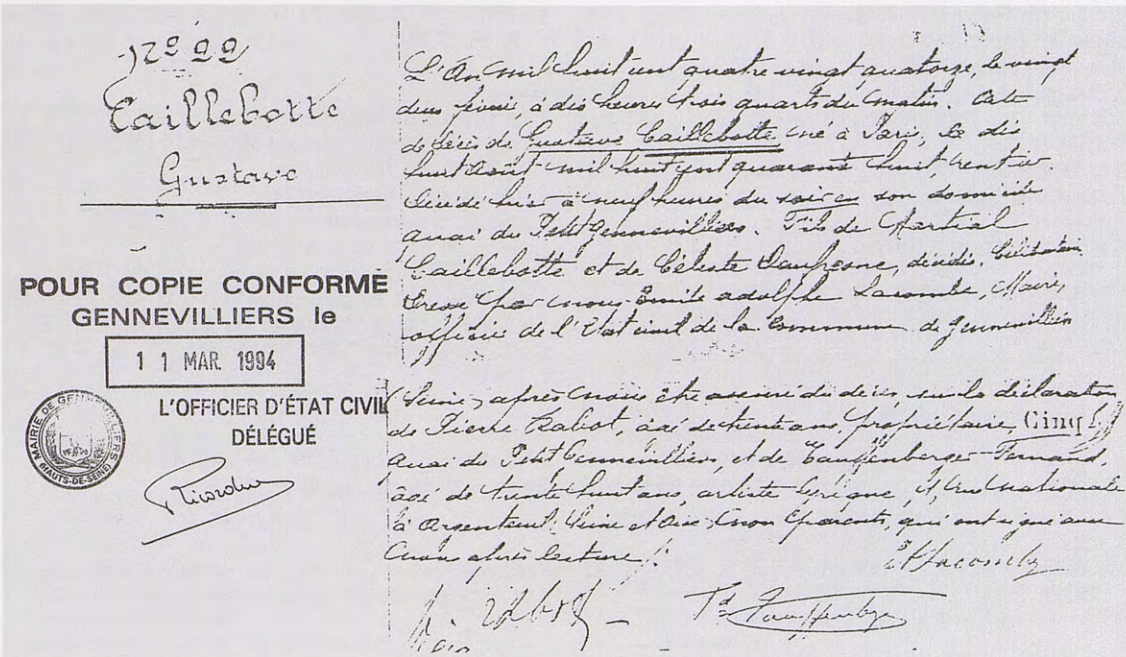 No 22
Caillebotte
Gustave
POUR COPIE CONFORME
GENNEVILLIERS le
1 1 MAR. 1994
L'OFFICIER D'ÉTAT CIVIL
DÉLÉGUÉ
MAIRIE DE GENNEVILLIERS
(HAUTS-DE-SEINE)
L'An mil huit cent quatre vingt quatorze, le vingt
deux février, à dix heures trois quarts du matin. Acte
de décès de Gustave Caillebotte, né à Paris, le dix
huit août mil huit cent quarante huit, rentier
décédé hier à neuf heures du soir en son domicile
quai du Petit Gennevilliers. Fils de Martial
Caillebotte et de Céleste Daufresne, décédés. Célibataire.
Dressé par nous Emile adolphe Lacombe, Maire,
officier de l'Etat civil de la Commune de Gennevilliers
(Seine) après nous être assuré du décès, sur la déclaration
de Pierre Rabot, âgé de trente ans, propriétaire,
quai du Petit Gennevilliers, et de Fernand,
âgé de trente huit ans, artiste lyrique, rue nationale
à Argenteuil, Seine et Oise, non parents, qui ont signé avec
nous après lecture.